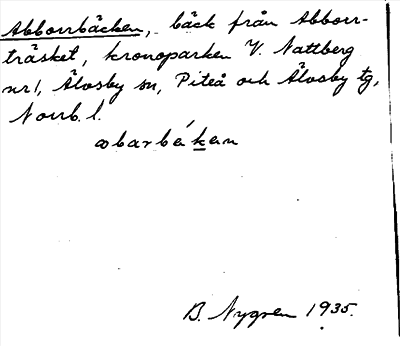 Abborrbäcken, bäck från Abborr-
träsket, kronoparken V. Nattberg
nr 1, Älvsby sn, Piteå och Älvsby tg,
Norrb. l.
B. Nygren 1935.